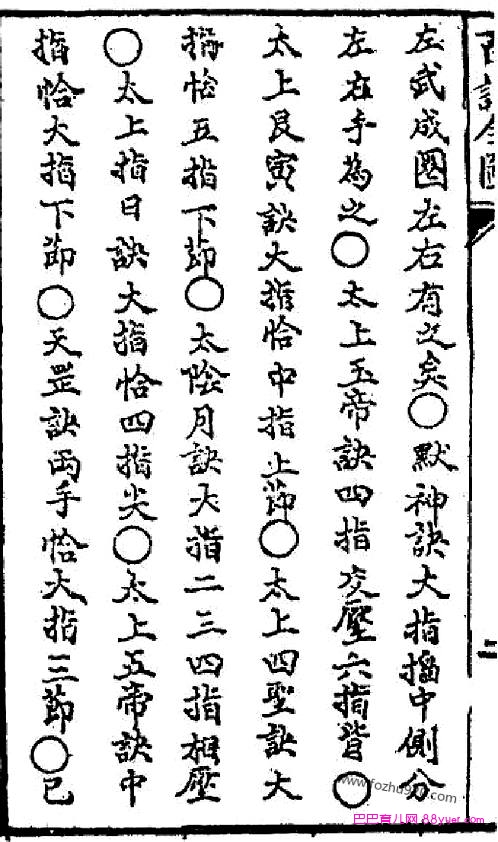 左武成圏左右有之矣○默神訣大指搯中側分
左右手為之○太上玉帝訣四指交壓六指皆○
太上艮寅訣大指恰中指上節○太上四聖訣大
指恰五指下節○太陰月訣大指二三四指相壓
○太上指日訣大指恰四指尖○太上五帝訣中
指恰大指下節○天罡訣両手恰大指三節○已
二
www.fozhu920.com
巴巴育儿网 88yuer.com